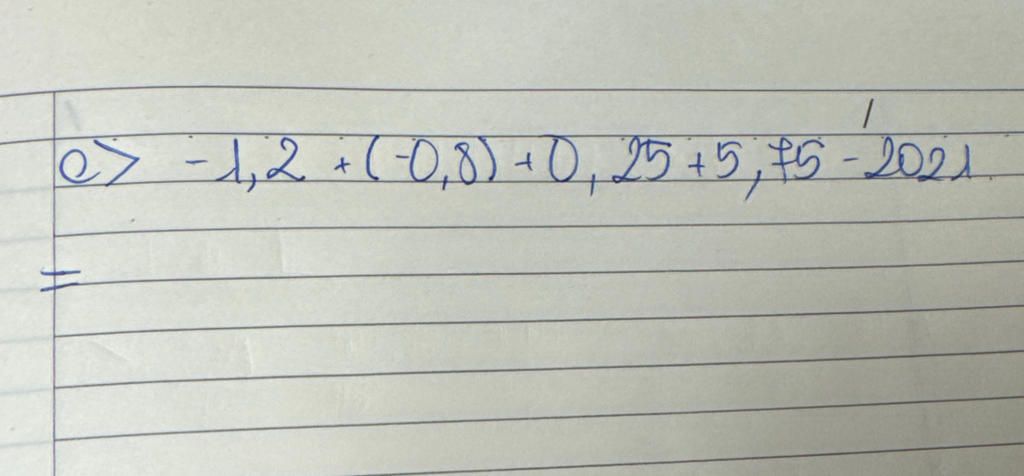 c> -1,2 + (-0,8) + 0,25 + 5,75 - 2021
=